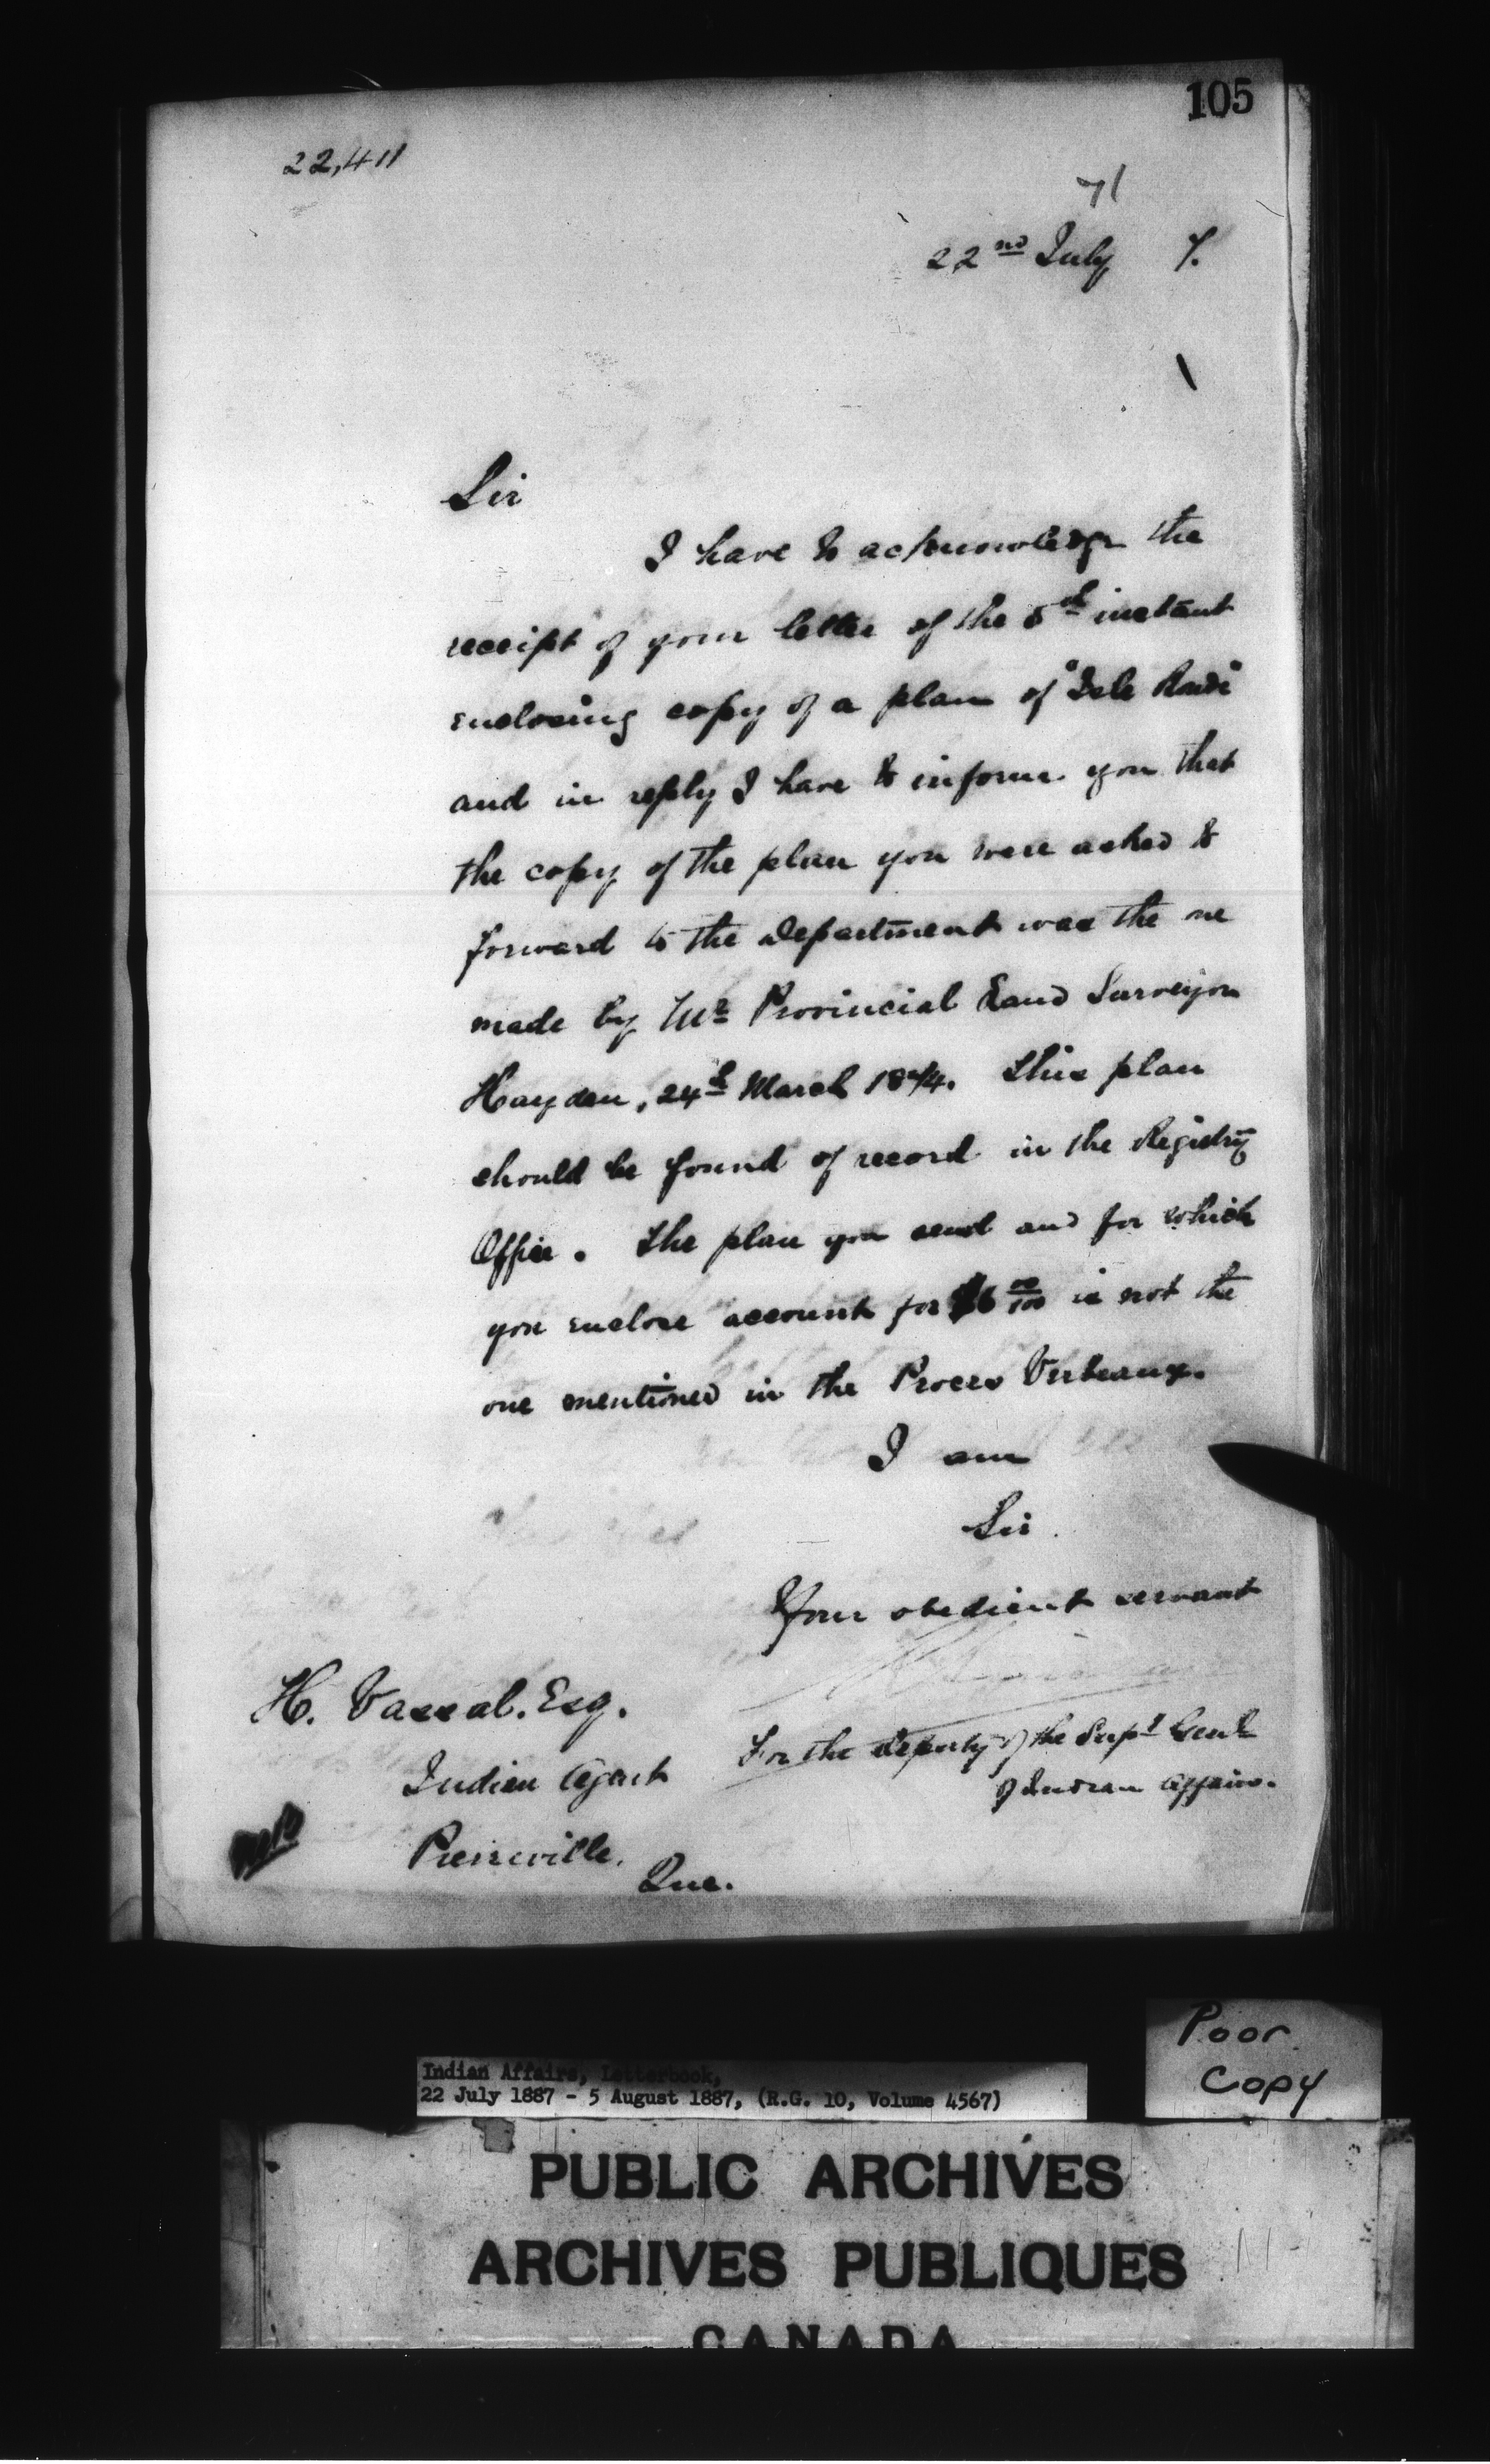 105
22,411
71
22nd July 7.
Sir
I have to acknowledge the
receipt of your letter of the 5th instant
enclosing copy of a plan of "Isle Ronde"
and in reply I have to inform you that
the copy of the plan you were asked to
forward to the Department was the one
made by Mr Provincial Land Surveyor
Hayden, 24th March 1874. This plan
should be found of record in the Registry
Office. The plan you send and for which
you enclose account for $6 00/100 is not the
one mentioned in the Proces Verbeaux.
I am
Sir
Your obedient servant
H. Vassal. Esq.
For the deputy of the Supt Genl
Indian Agent
of Indian Affairs.
Pierreville.
Que.
Poor
Copy
Indian Affairs, Letterbook,
22 July 1887 - 5 August 1887, (R.G. 10, Volume 4567)
PUBLIC ARCHIVES
ARCHIVES PUBLIQUES
CANADA